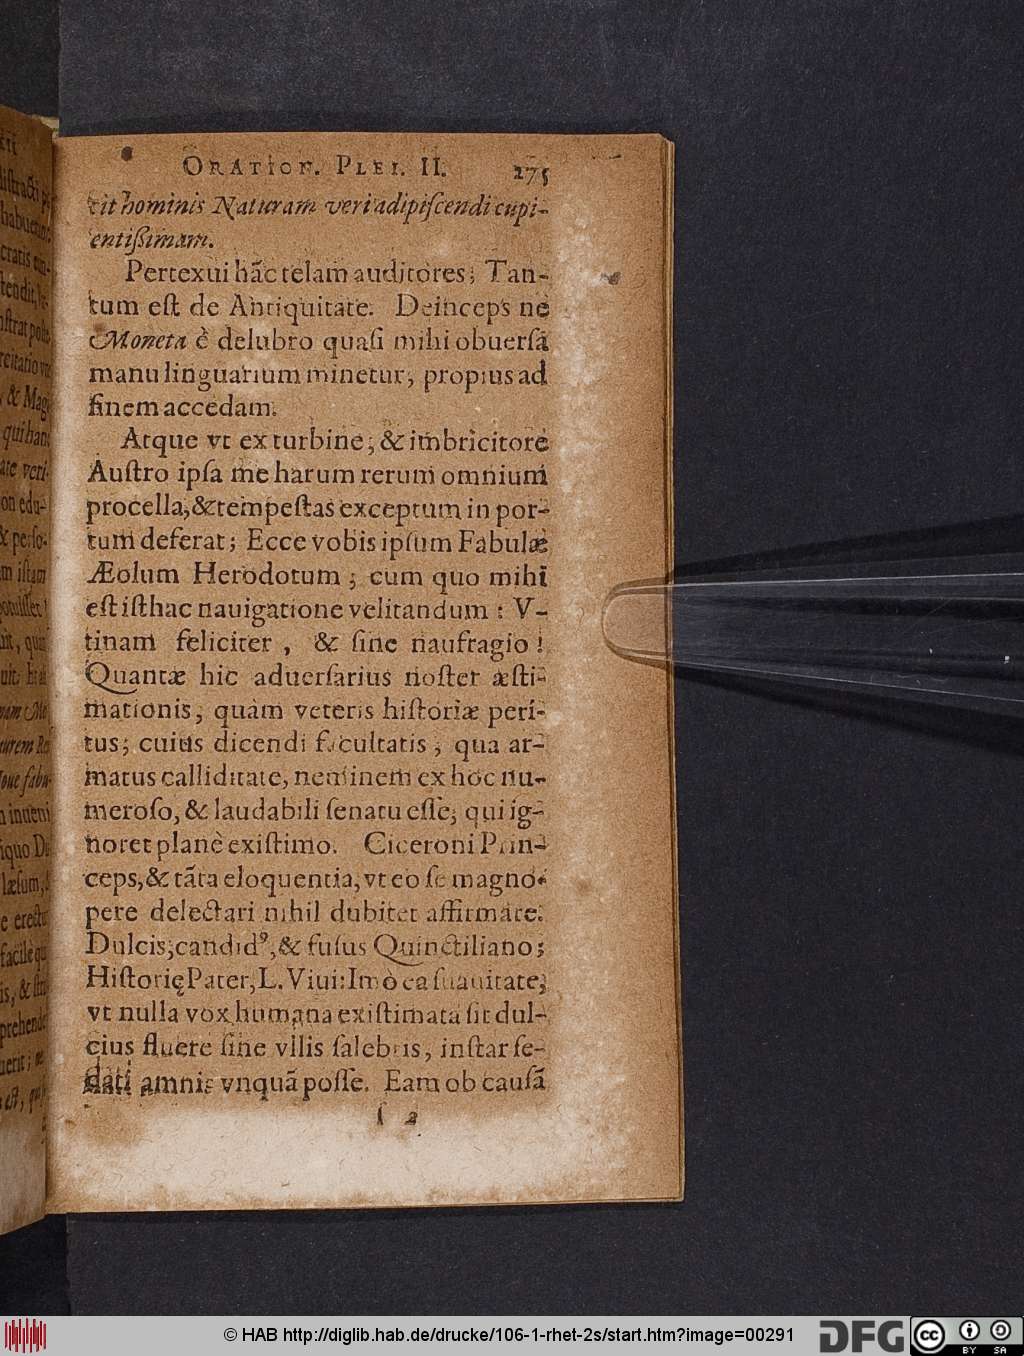 ORATION. PLEI. II. 275
tit hominis Naturam veri adipiſcendi cupi-
entiſſimam.
Pertexui hãc telam auditores; Tan-
tum eſt de Antiquitate. Deinceps ne
Moneta è delubro quaſi mihi obuerſã
manu linguarium minetur, propius ad
finem accedam.
Atque vt ex turbine, & imbricitore
Auſtro ipſa me harum rerum omnium
procella, & tempeſtas exceptum in por-
tum deferat; Ecce vobis ipſum Fabulæ
Æolum Herodotum; cum quo mihi
eſt iſthac nauigatione velitandum: V-
tinam feliciter, & ſine naufragio!
Quantæ hic aduerſarius noſter æſti-
mationis, quàm veteris hiſtoriæ peri-
tus; cuius dicendi facultatis, qua ar-
matus calliditate, neminem ex hoc nu-
meroſo, & laudabili ſenatu eſſe, qui ig-
noret planè exiſtimo. Ciceroni Prin-
ceps, & tãta eloquentia, vt eo ſe magno-
pere delectari nihil dubitet affirmare.
Dulcis, candidꝰ, & fuſus Quinctiliano;
Hiſtorię Pater, L. Viui: Imò ea ſuauitate,
vt nulla vox humana exiſtimata ſit dul-
cius fluere ſine vllis ſalebris, inſtar ſe-
dati amnis vnquã poſſe. Eam ob cauſã
ſ 2
© HAB http://diglib.hab.de/drucke/106-1-rhet-2s/start.htm?image=00291 DFG cc BY SA